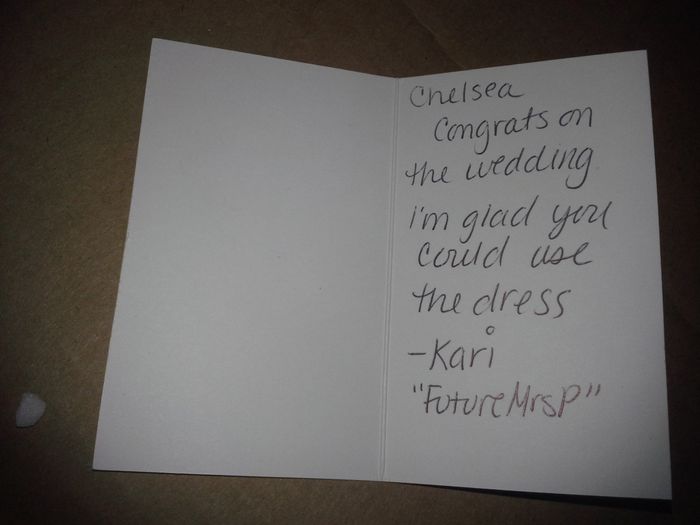 Chelsea
Congrats on
the wedding
i'm glad you
could use
the dress
-Kari
"FutureMrsP"